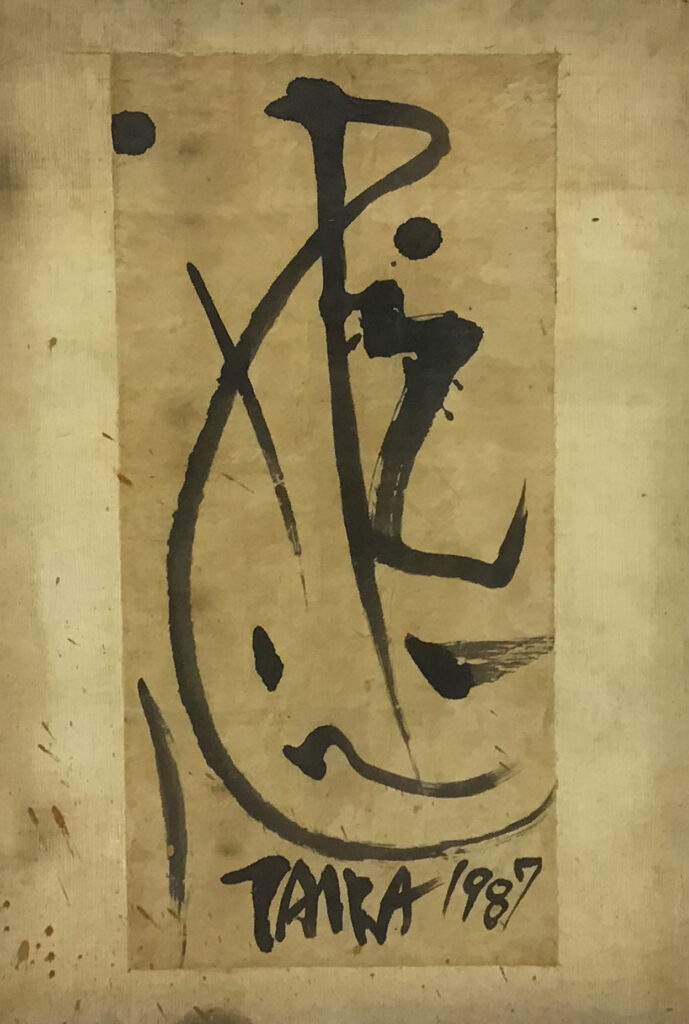 TAIRA 1987